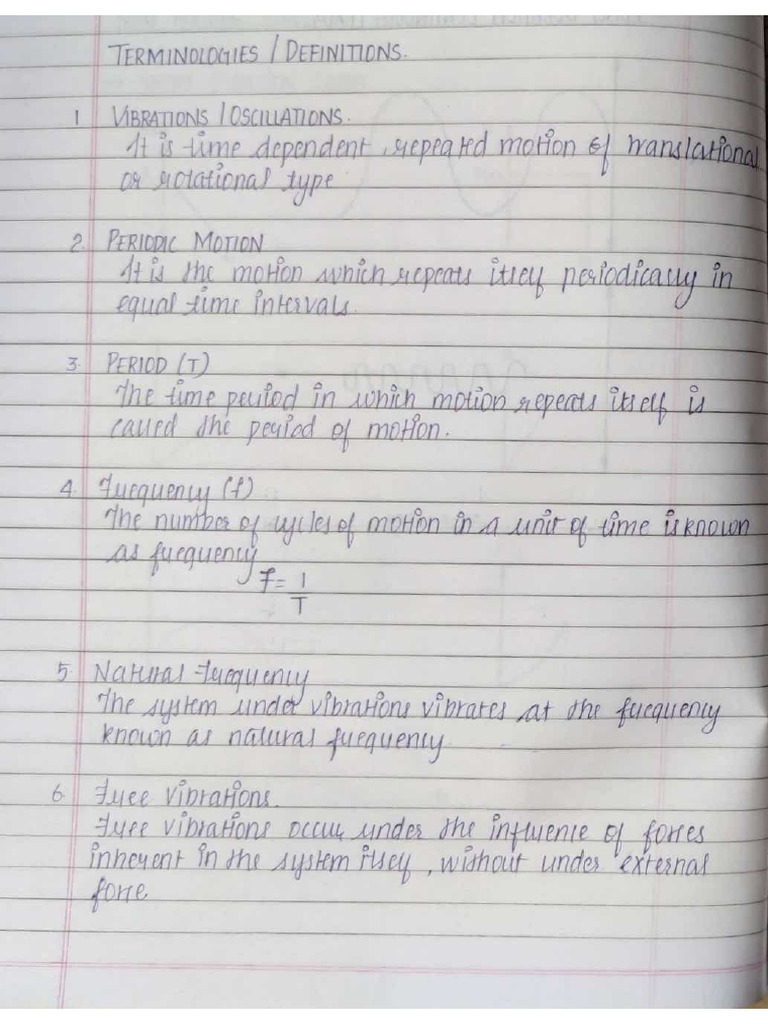 TERMINOLOGIES / DEFINITIONS.
1 VIBRATIONS / OSCILLATIONS.
It is time dependent, repeated motion of translational
or rotational type
2. PERIODIC MOTION
It is the motion which repeats itself periodically in
equal time intervals.
3. PERIOD (T)
The time period in which motion repeats itself is
called the period of motion.
4. Frequency (f)
The number of cycles of motion in a unit of time is known
as frequency
f = 1
T
5. Natural Frequency
The system under vibrations vibrates at the frequency
known as natural frequency.
6. Free Vibrations.
Free vibrations occur under the influence of forces
inherent in the system itself, without under external
force